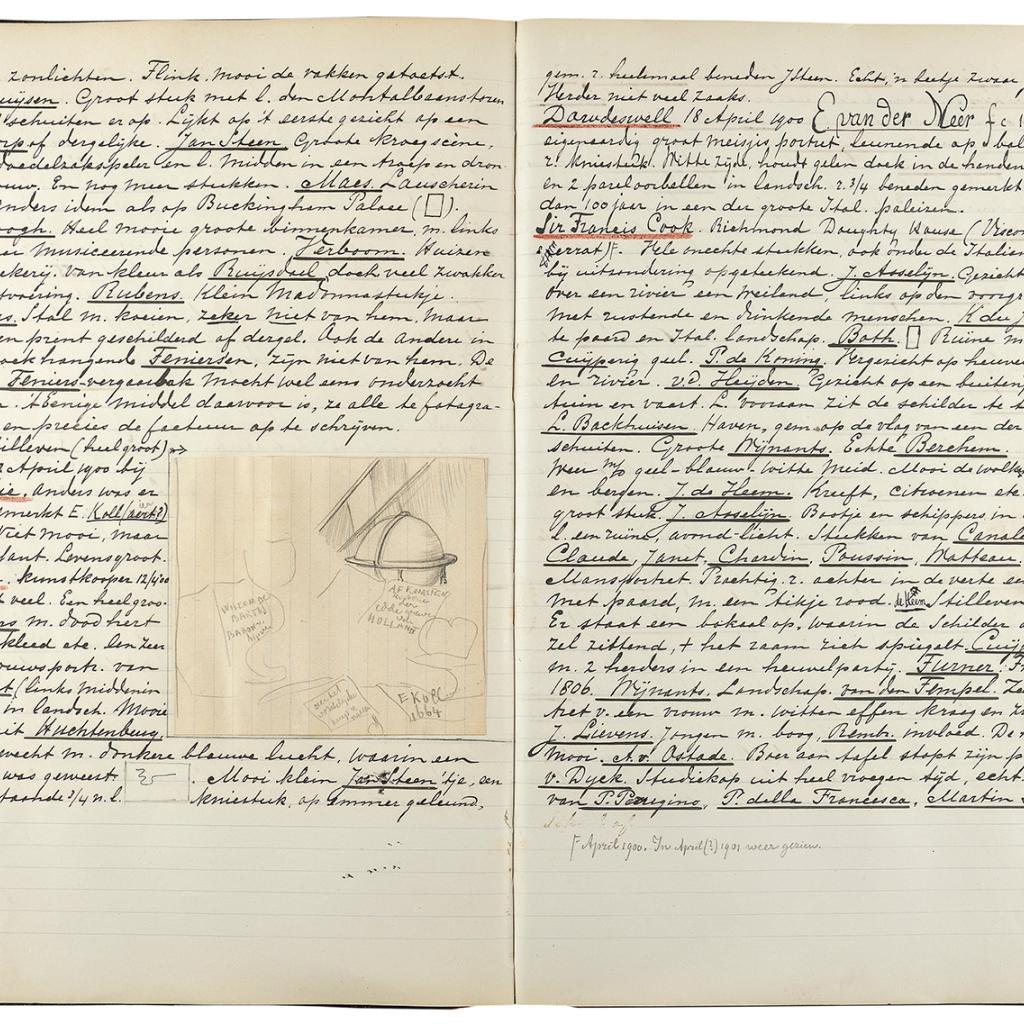 zonlichten. Flink, mooi de vakken getoetst.
uijsen. Groot stuk met l. den Montalbaanstoren
schuiten er op. Lijkt op 't eerste gezicht op een
orp of dergelijke. Jan Steen Groote kroegscène,
doedelzakspeler en l. midden in een troep en dron
ouw. En nog meer stukken. Maes. Lauscherin
anders idem als op Buckingham Palace (
oogh. Heel mooie groote binnenkamer, m. links
er musiceerende personen. Verboom. Huizen
ekerij. van kleur als Ruijsdael doch veel zwakker
tvoering. Rubens. Klein Madonnastukje.
rs. Stal m. koeien, zeker niet van hem, maar
en prent geschilderd of dergel. Ook de andere in
oek hangende Teniersen, zijn niet van hem. De
Teniers-vergaarbak mocht wel eens onderzocht
n. 't Eenige middel daarvoor is, ze alle te fotogra-
en precies de factuur op te schrijven.
tilleven (heel groot)
2 April 1900 bij
ie, anders was er
merkt E. Koll (aert?)
Niet mooi, maar
lant. Levensgroot.
kunstkooper 12/4 00
t veel. Een heel groo-
rs m. dood hert
kleed etc. Een zeer
ouwsportr. van
t (links midden in
in landsch. Mooie
it Huchtenburg,
vecht m. donkere blauwe lucht, waarin een
was geweest . Mooi klein Jan Steen 'tje, een
taande 3/4 n. l. kniestuk, op emmer geleund,
WILLEM DE
BARON
HOLLANDT
E KOLL
1664
gem. r. heelemaal beneden JSteen. Echt, 'n beetje zwaar
Herder niet veel zaaks.
Dowdeswell 18 April 1900 E. van der Neer fc 1
eigenaardig groot meisjes portret, leunende op 'n bal
r. kniestuk. Witte zijde, houdt gelen doek in de handen
en 2 pareloorbellen in landsch. r. 3/4 beneden gemerkt
dan 100 jaar in een der groote Ital. paleizen.
Sir Francis Cook. Richmond Doughty House (Viscon
serrat). Vele onechte stukken, ook onder de Italien
bij uitzondering opgeteekend. J. Asselijn. Gezicht
over een rivier een weiland, links op den voorgr
met rustende en drinkende menschen. K du J
te paard en Ital. landschap. Both. Ruïne m
Cuijperig geel. P. de Koning. Vergezicht op heuvel
en rivier. v.d. Heijden. Gezicht op een buiten
tuin en vaart. L. vooraan zit de schilder te t
L. Backhuisen. Haven, gem. op de vlag van een der
schuiten. Groote Wijnants. Echte Berchem.
Weer mo geel-blauw-witte meid. Mooi de wolk
en bergen. J. de Heem. Kreeft, citroenen etc
groot stuk. J. Asselijn. Bootje en schippers in
l. een ruïne, avond-licht. Stukken van Canale
Claude, Janet, Chardin, Poussin, Watteau.
Mansportret. Prachtig. r. achter in de verte een
met paard, m. een tikje rood. de Heem Stilleven
Er staat een bokaal op, waarin de Schilder
zel zittend, + het raam zich spiegelt. Cuijp
m. 2 herders in een heuvelpartij. Turner. F
1806. Wijnants. Landschap. van den Tempel. Ze
tret v. een vrouw m. witten effen kraag en z
J. Lievens. Jongen m. boog, Rembr. invloed. De
mooi. A. v. Ostade. Boer aan tafel stopt zijn p
v. Dyck. Studiekop uit heel vroegen tijd, echt
van P. Perugino, P. della Francesca, Martin
April 1900. In April (?) 1901 weer gezien.